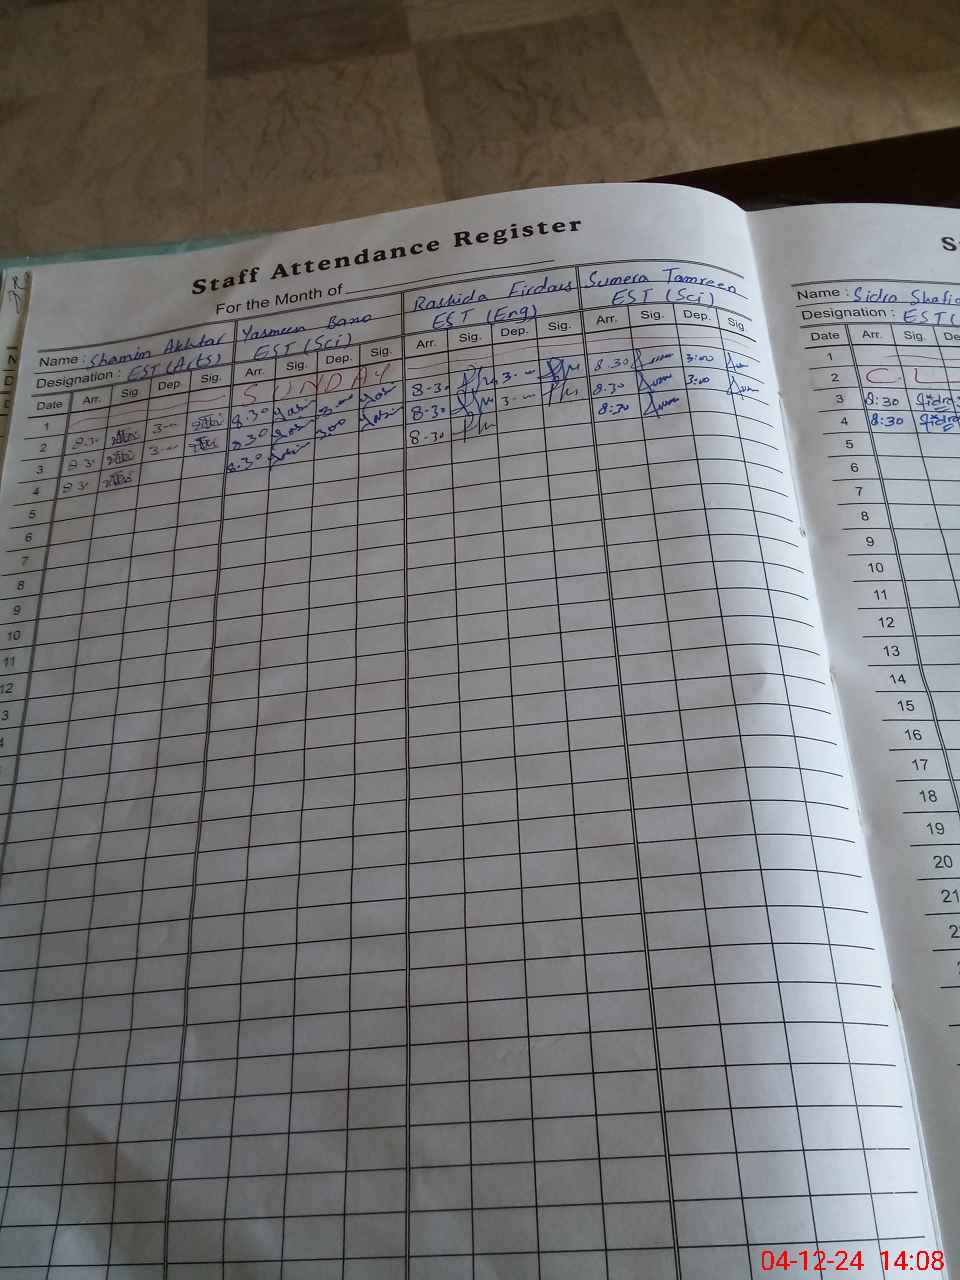 Staff Attendance Register
For the Month of
Name : Shamim Akhtar Yasmeen Bano Rashida Firdaus Sumera Tamreen
Designation : EST (Arts) EST (Sci) EST (Eng) EST (Sci)
Date Arr. Sig. Dep. Sig. Arr. Sig. Dep. Sig. Arr. Sig. Dep. Sig. Arr. Sig. Dep. Sig.
1 SUNDAY
2 8.30 3-00 8.30 3-00 8-30 3-00 8.30 3:00
3 8.30 3-00 8.30 3-00 8-30 3-00 8:30 3:00
4 8.30 8.30 8-30 8:30
5
6
7
8
9
10
11
12
3
4
Name : Sidra Shafiq
Designation : EST (
Date Arr. Sig. De
1
2 C L
3 8:30 Sidra
4 8:30 Sidra
5
6
7
8
9
10
11
12
13
14
15
16
17
18
19
20
21
04-12-24 14:08